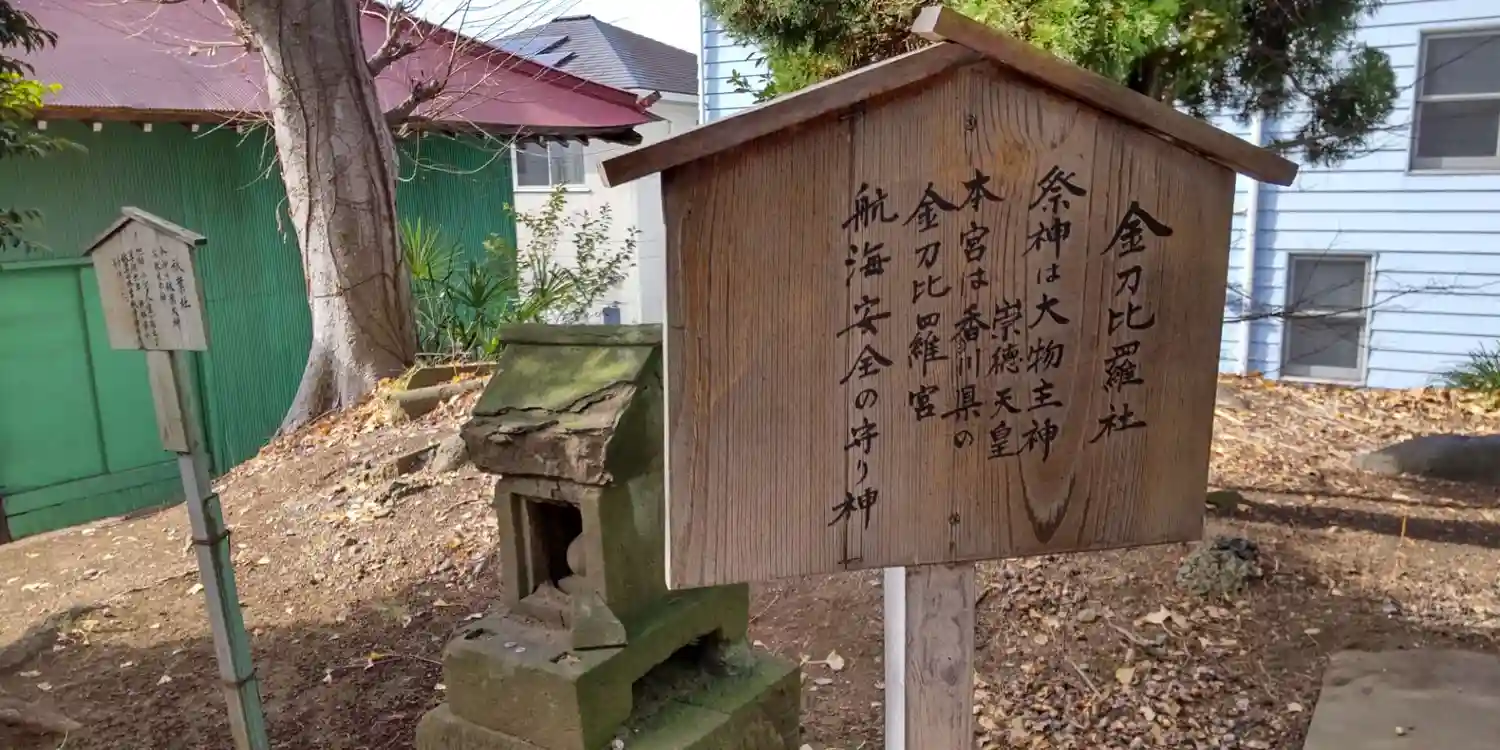 金刀比羅社
祭神は大物主神
崇徳天皇
本宮は香川県の
金刀比羅宮
航海安全の守り神
秋葉社